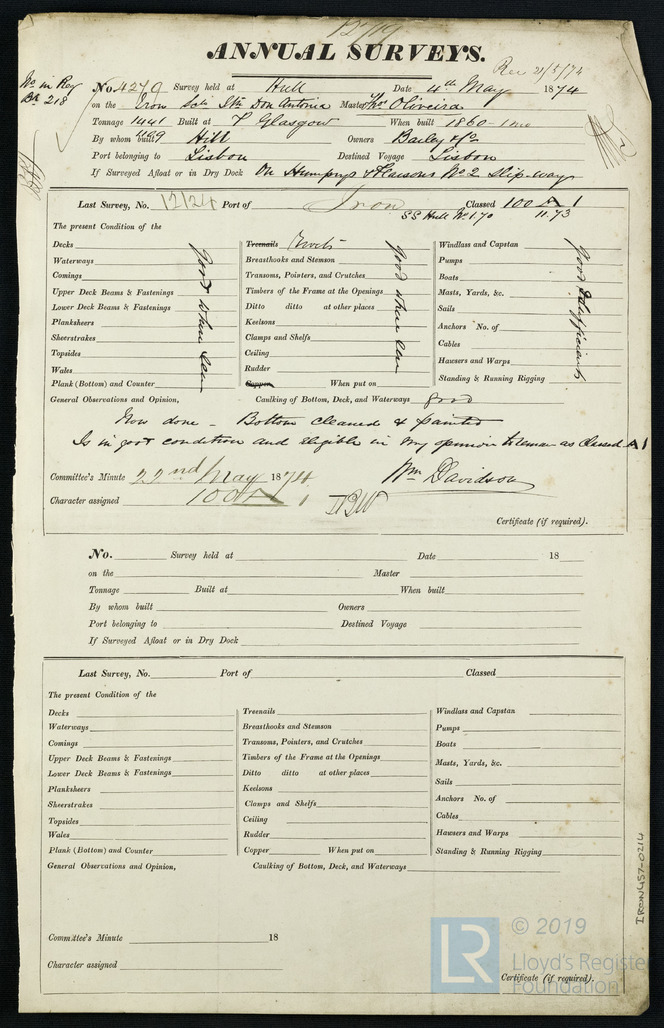 12719
ANNUAL SURVEYS.
Rec 21/5/74
No in Reg
Br 218
No. 4279 Survey held at Hull Date 4th May 1874
on the Iron Str Don Antonio Master Oliveira
Tonnage 1441 Built at Glasgow When built 1860
1129
By whom built Hill Owners Bailey & Co
Port belonging to Lisbon Destined Voyage Lisbon
If Surveyed Afloat or in Dry Dock On Humphrys & Pearsons No 2 Slip-way
Last Survey, No. 12124 Port of Iron Classed 100 A 1
SS Hull No 1.70 11.73
The present Condition of the
Decks
Waterways
Comings
Upper Deck Beams & Fastenings
Lower Deck Beams & Fastenings
Planksheers
Sheerstrakes
Topsides
Wales
Plank (Bottom) and Counter
Good where seen
Treenails Rivets
Breasthooks and Stemson
Transoms, Pointers, and Crutches
Timbers of the Frame at the Openings
Ditto ditto at other places
Keelsons
Clamps and Shelfs
Ceiling
Rudder
Copper When put on
good where seen
Windlass and Capstan
Pumps
Boats
Masts, Yards, &c.
Sails
Anchors No. of
Cables
Hawsers and Warps
Standing & Running Rigging
Good & Sufficient
General Observations and Opinion, Caulking of Bottom, Deck, and Waterways good
Now done - Bottom cleaned & painted
Is in good condition and eligible in my opinion to remain as Classed A1
Committee's Minute 22nd May 1874
Wm Davidson
Character assigned 100 A 1
Certificate (if required).
No. Survey held at Date 18
on the Master
Tonnage Built at When built
By whom built Owners
Port belonging to Destined Voyage
If Surveyed Afloat or in Dry Dock
Last Survey, No. Port of Classed
The present Condition of the
Decks
Waterways
Comings
Upper Deck Beams & Fastenings
Lower Deck Beams & Fastenings
Planksheers
Sheerstrakes
Topsides
Wales
Plank (Bottom) and Counter
Treenails
Breasthooks and Stemson
Transoms, Pointers, and Crutches
Timbers of the Frame at the Openings
Ditto ditto at other places
Keelsons
Clamps and Shelfs
Ceiling
Rudder
Copper When put on
Windlass and Capstan
Pumps
Boats
Masts, Yards, &c.
Sails
Anchors No. of
Cables
Hawsers and Warps
Standing & Running Rigging
General Observations and Opinion, Caulking of Bottom, Deck, and Waterways
Committee's Minute 18
Character assigned
Certificate (if required).
IRON457-0214
LR
© 2019
Lloyd's Register
Foundation